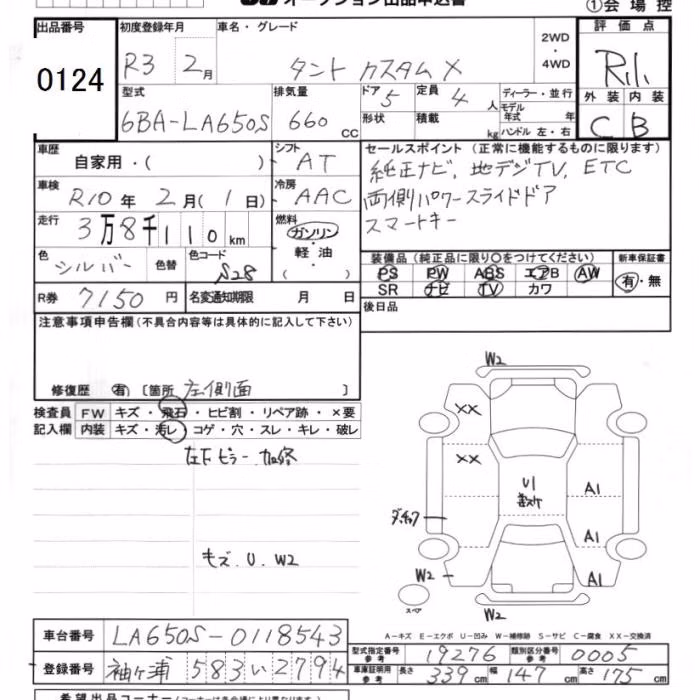 オークション出品申込書
①会場控
出品番号 0124
初度登録年月 R3 2月
車名・グレード タント カスタム X
2WD・4WD
評価点 R
外装 C 内装 B
型式 6BA-LA650S
排気量 660 cc
ドア 5 定員 4人
形状 積載 kg
ディーラー・並行
モデル年式 年
ハンドル 左・右
車歴 自家用・( )
シフト AT
車検 R10年 2月(1日)
冷房 AAC
走行 3万8千110km
燃料 ガソリン・軽油・( )
色 シルバー 色替
色コード S28
R券 7150円
名変通知期限 月 日
セールスポイント(正常に機能するものに限ります)
純正ナビ、地デジTV、ETC
両側パワースライドドア
スマートキー
装備品(純正品に限り○をつけてください)
PS PW ABS エアB AW
SR ナビ TV カワ
新車保証書 有・無
後日品
注意事項申告欄(不具合内容等は具体的に記入して下さい)
修復歴 有 〔箇所 左側面 〕
検査員記入欄
FW キズ・飛石・ヒビ割・リペア跡・×要
内装 キズ・汚レ・コゲ・穴・スレ・キレ・破レ
左下ピラー加修
キズ.U.W2
W2
XX
XX
U1
A1
A1
A1
W2
W2
スペア
A-キズ E-エクボ U-凹み W-補修跡 S-サビ C-腐食 XX-交換済
車台番号 LA650S-0118543
登録番号 袖ヶ浦 583 い 2794
型式指定番号 参考 19276 類別区分番号 参考 0005
車庫証明用 参考 長さ 339cm 幅 147cm 高さ 175cm
希望出品コーナー